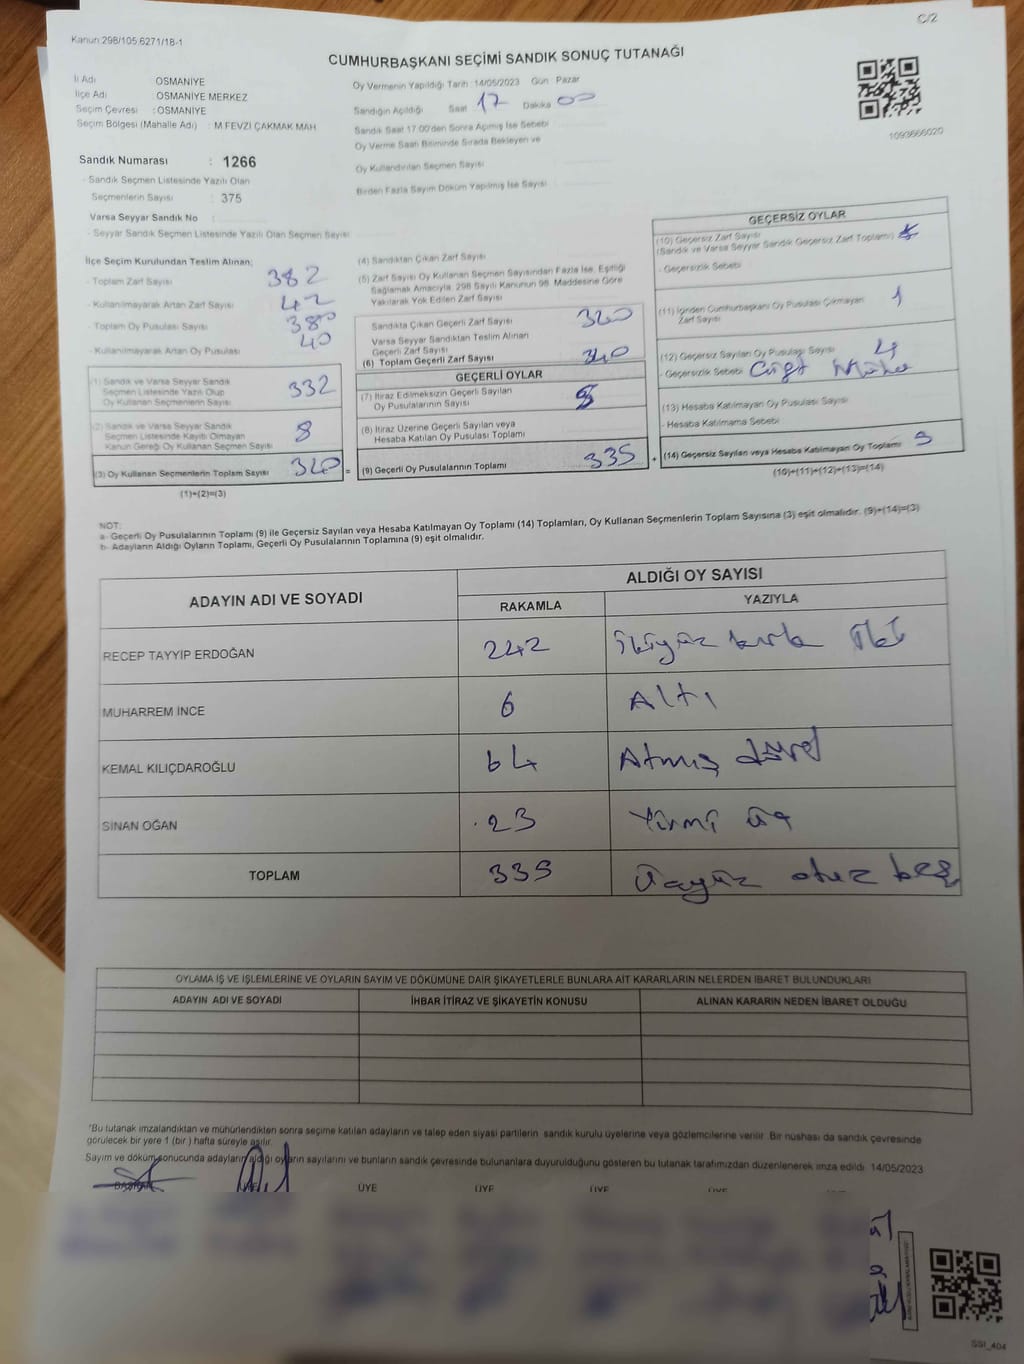 C/2
Kanun:298/105.6271/18-1
CUMHURBAŞKANI SEÇİMİ SANDIK SONUÇ TUTANAĞI
İl Adı OSMANİYE
İlçe Adı OSMANİYE MERKEZ
Seçim Çevresi : OSMANİYE
Seçim Bölgesi (Mahalle Adı) : M.FEVZİ ÇAKMAK MAH
Oy Vermenin Yapıldığı Tarih :14/05/2023 Gün Pazar
Sandığın Açıldığı Saat 17 Dakika 00
Sandık Saat 17:00'den Sonra Açılmış İse Sebebi
Oy Verme Saati Bitiminde Sırada Bekleyen ve
Oy Kullandırılan Seçmen Sayısı
Birden Fazla Sayım Döküm Yapılmış İse Sayısı
1093666020
Sandık Numarası : 1266
- Sandık Seçmen Listesinde Yazılı Olan
Seçmenlerin Sayısı : 375
Varsa Seyyar Sandık No :
- Seyyar Sandık Seçmen Listesinde Yazılı Olan Seçmen Sayısı
İlçe Seçim Kurulundan Teslim Alınan;
- Toplam Zarf Sayısı 382
- Kullanılmayarak Artan Zarf Sayısı 42
- Toplam Oy Pusulası Sayısı 380
- Kullanılmayarak Artan Oy Pusulası 40
(1) Sandık ve Varsa Seyyar Sandık
Seçmen Listesinde Yazılı Olup
Oy Kullanan Seçmenlerin Sayısı 332
(2) Sandık ve Varsa Seyyar Sandık
Seçmen Listesinde Kayıtlı Olmayan
Kanun Gereği Oy Kullanan Seçmen Sayısı 8
(3) Oy Kullanan Seçmenlerin Toplam Sayısı 340 =
(1)+(2)=(3)
(4) Sandıktan Çıkan Zarf Sayısı
(5) Zarf Sayısı Oy Kullanan Seçmen Sayısından Fazla İse, Eşitliği
Sağlamak Amacıyla, 298 Sayılı Kanunun 98. Maddesine Göre
Yakılarak Yok Edilen Zarf Sayısı
Sandıkta Çıkan Geçerli Zarf Sayısı 340
Varsa Seyyar Sandıktan Teslim Alınan
Geçerli Zarf Sayısı
(6) Toplam Geçerli Zarf Sayısı 340
GEÇERLİ OYLAR
(7) İtiraz Edilmeksizin Geçerli Sayılan
Oy Pusulalarının Sayısı
(8) İtiraz Üzerine Geçerli Sayılan veya
Hesaba Katılan Oy Pusulası Toplamı
(9) Geçerli Oy Pusulalarının Toplamı 335 +
GEÇERSİZ OYLAR
(10) Geçersiz Zarf Sayısı
(Sandık ve Varsa Seyyar Sandık Geçersiz Zarf Toplamı)
- Geçersizlik Sebebi
(11) İçinden Cumhurbaşkanı Oy Pusulası Çıkmayan
Zarf Sayısı 1
(12) Geçersiz Sayılan Oy Pusulası Sayısı 4
- Geçersizlik Sebebi Çift Mühür
(13) Hesaba Katılmayan Oy Pusulası Sayısı
- Hesaba Katılmama Sebebi
(14) Geçersiz Sayılan veya Hesaba Katılmayan Oy Toplamı 5
(10)+(11)+(12)+(13)=(14)
NOT:
a- Geçerli Oy Pusulalarının Toplamı (9) ile Geçersiz Sayılan veya Hesaba Katılmayan Oy Toplamı (14) Toplamları, Oy Kullanan Seçmenlerin Toplam Sayısına (3) eşit olmalıdır. (9)+(14)=(3)
b- Adayların Aldığı Oyların Toplamı, Geçerli Oy Pusulalarının Toplamına (9) eşit olmalıdır.
ADAYIN ADI VE SOYADI ALDIĞI OY SAYISI
RAKAMLA YAZIYLA
RECEP TAYYİP ERDOĞAN 242 ikiyüz kırk iki
MUHARREM İNCE 6 Altı
KEMAL KILIÇDAROĞLU 64 Atmış dört
SİNAN OĞAN 23 Yirmi üç
TOPLAM 335 üçyüz otuz beş
OYLAMA İŞ VE İŞLEMLERİNE VE OYLARIN SAYIM VE DÖKÜMÜNE DAİR ŞİKAYETLERLE BUNLARA AİT KARARLARIN NELERDEN İBARET BULUNDUKLARI
ADAYIN ADI VE SOYADI İHBAR İTİRAZ VE ŞİKAYETİN KONUSU ALINAN KARARIN NEDEN İBARET OLDUĞU
*Bu tutanak imzalandıktan ve mühürlendikten sonra seçime katılan adayların ve talep eden siyasi partilerin sandık kurulu üyelerine veya gözlemcilerine verilir. Bir nüshası da sandık çevresinde
görülecek bir yere 1 (bir ) hafta süreyle asılır.
Sayım ve döküm sonucunda adayların aldığı oyların sayılarını ve bunların sandık çevresinde bulunanlara duyurulduğunu gösteren bu tutanak tarafımızdan düzenlenerek imza edildi. 14/05/2023
BAŞKAN ÜYE ÜYE ÜYE ÜYE ÜYE
SSI_404